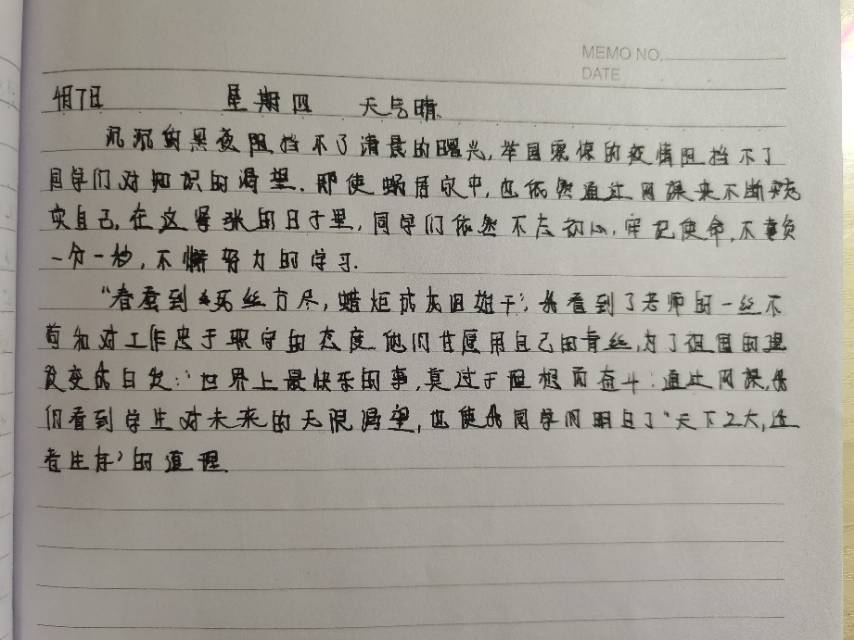 MEMO NO.
DATE
4月7日 星期四 天气晴
沉沉的黑夜阻挡不了清晨的曙光,举国震惊的疫情阻挡不了
同学们对知识的渴望.即使蜗居家中,也依然通过网课来不断充
实自己,在这紧张的日子里,同学们依然不忘初心,牢记使命,不辜负
一分一秒,不懈努力的学习.
"春蚕到死丝方尽,蜡炬成灰泪始干",我看到了老师的一丝不
苟和对工作忠于职守的态度.他们甘愿用自己的青丝,为了祖国的建
设变成白发;"世界上最快乐的事,莫过于理想而奋斗"通过网课,我
们看到学生对未来的无限渴望,也使我同学们明白了"天下之大,适
者生存"的道理.